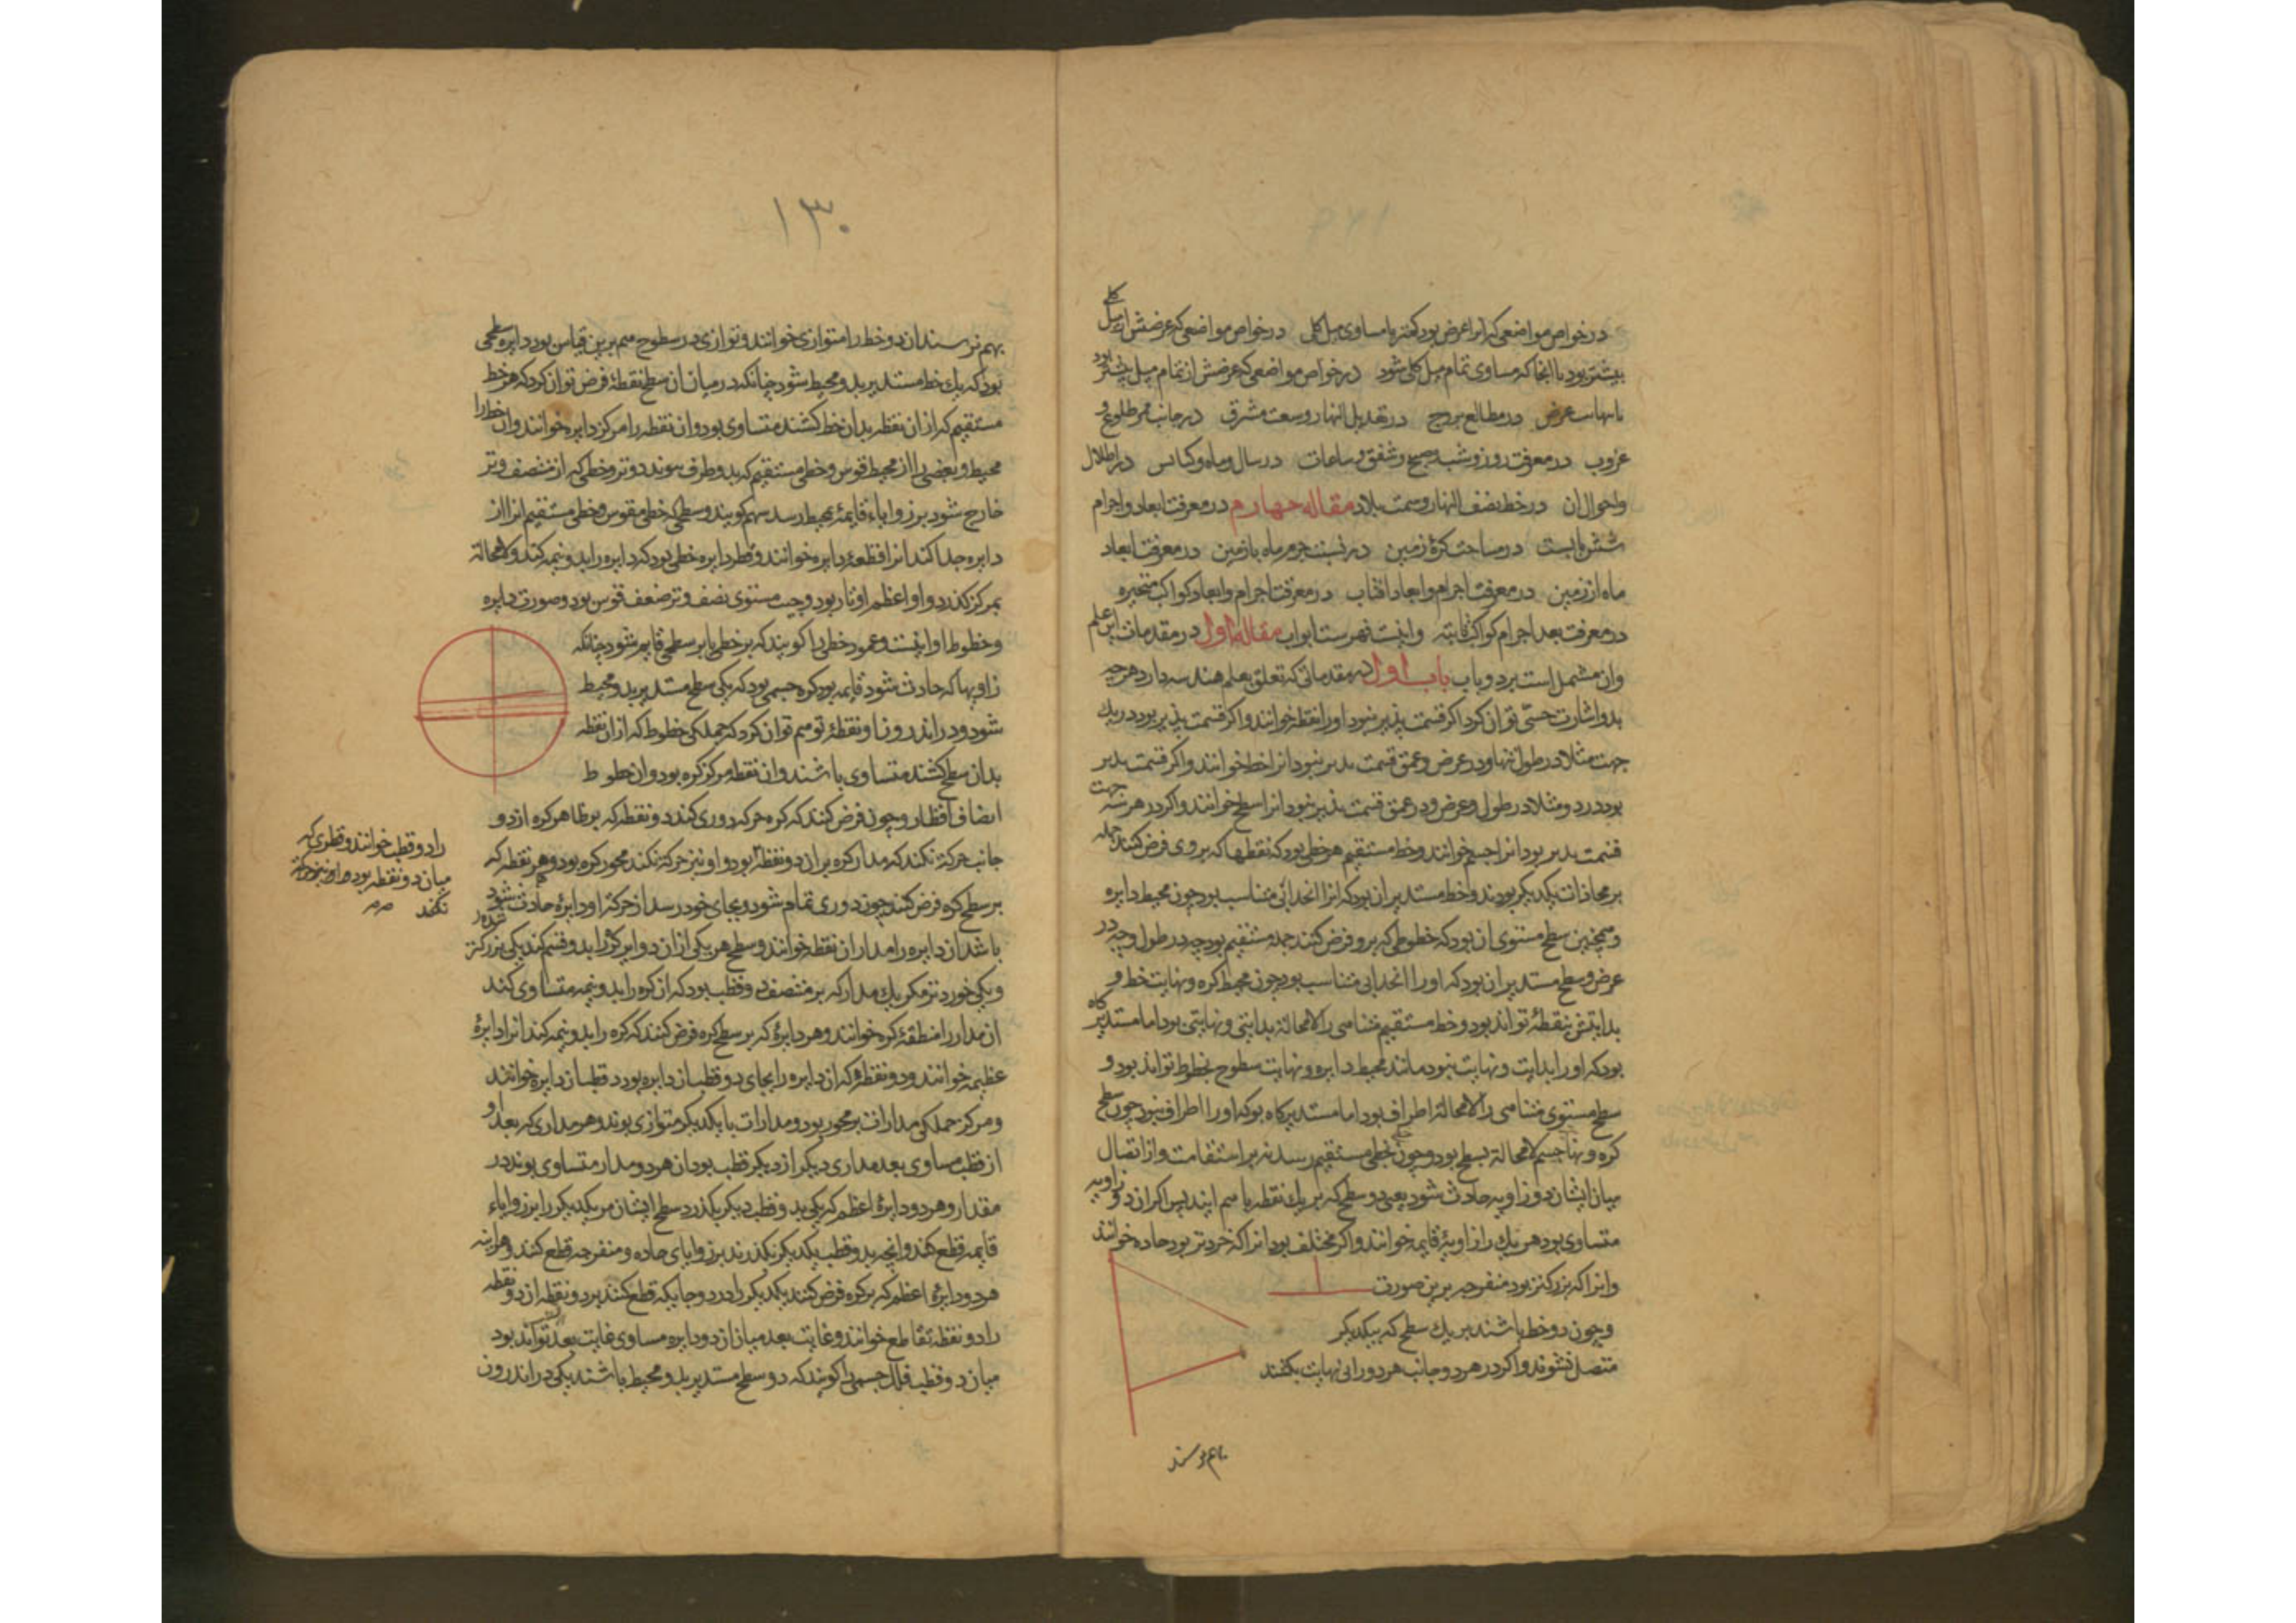 در خواص مواضعی که آنرا عرض بود کمتر یا مساوی میل کلی در خواص مواضعی که عرضش از میل کلی
بیشتر بود تا انجا که مساوی تمام میل کلی شود در خواص مواضعی که عرضش از تمام میل بیشتر بود
تا نهایت عرض در مطالع بروج در تعدیل النهار وسعت مشرق در جانب ممر طلوع و
غروب در معرفت روز و شب و صبح و شفق و ساعات در سال و ماه و کبایس در اظلال
واحوال ان در خط نصف النهار وسمت بلاد مقاله چهارم در معرفت ابعاد و اجرام
شش بابست در مساحت کرهٔ زمین در نسبت جرم ماه با زمین در معرفت ابعاد
ماه از زمین در معرفت اجرام وابعاد افتاب در معرفت اجرام وابعاد کواکب متحیره
در معرفت بعد اجرام کواکب ثابته واینست فهرست ابواب مقاله اول در مقدمات این علم
وان مشتمل است بر دو باب باب اول در مقدماتی که تعلق بعلم هندسه دارد هرچه
بدو اشارت حسّی توان کرد اکر قسمت پذیر نبود اورا نقطه خوانند واکر قسمت پذیر بود در یک
جهت مثلا در طول تنها ودر عرض وعمق قسمت پذیر نبود انرا خط خوانند واکر قسمت پذیر
بود در دو مثلا در طول وعرض ودر عمق قسمت پذیر نبود انرا سطح خوانند واکر در هر سه جهت
قسمت پذیر بود انرا جسم خوانند وخط مستقیم هر خطی بود که نقطها که بر وی فرض کنند جمله
بر محاذات یکدیکر بودند وخط مستدیر ان بود که انرا انحدابی متناسب بود چون محیط دایره
وهمچنین سطح مستوی ان بود که خطوطی که برو فرض کنند جمله مستقیم بود چه در طول وچه در
عرض وسطح مستدیر ان بود که اورا انحدابی متناسب بود چون محیط کره ونهایت خط و
بدایتش نقطهٔ تواند بود وخط مستقیم متناهی را لامحالة بدایتی ونهایتی بود اما مستدیر کاه
بود که اورا بدایت ونهایت نبود مانند محیط دایره ونهایت سطوح خطوط تواند بود و
سطح مستوی متناهی را لامحالة اطراف بود اما مستدیر کاه بود که اورا اطراف نبود چون سطح
کره ونهایت جسم لامحالة سطح بود وچون خطی بخطی مستقیم رسد نه بر استقامت واز اتصال
میان ایشان دو زاویه حادث شود یعنی دو سطح که بر یک نقطه با هم ایند پس اکر ان دو زاویه
متساوی بود هر یک را زاویهٔ قایمه خوانند واکر مختلف بود انرا که خردتر بود حاده خوانند
وانرا که بزرکتر بود منفرجه برین صورت
وچون دو خط باشند بر یک سطح که بیکدیکر
متصل نشوند واکر در هر دو جانب هر دو را بی نهایت بکشند
بهم نرسند
۱۳۰
بهم نرسند ان دو خط را متوازی خوانند وتوازی در سطوح هم برین قیاس بود دایره سطحی
بود که یک خط مستدیر بدو محیط شود چنانکه در میان ان سطح نقطهٔ فرض توان کرد که هر خط
مستقیم که از ان نقطه بدان خط کشند متساوی بود وان نقطه را مرکز دایره خوانند وان خط را
محیط وبعضی را از محیط قوس وخطی مستقیم که بدو طرف پیوندد وتر وخطی که از منتصف وتر
خارج شود بر زوایاء قایمه بمحیط رسد سهم کویند وسطحی که خطی مقوس وخطی مستقیم انرا از
دایره جدا کند انرا قطعهٔ دایره خوانند وقطر دایره خطی بود که دایره را بدو نیمه کند ولامحالة
بمرکز کذرد واو اعظم اوتار بود وجیب مستوی نصف وتر ضعف قوس بود وصورت دایره
وخطوط او اینست وعمود خطی را کویند که بر خطی یا بر سطحی قایم شود چنانکه
زاویها که حادث شود قایمه بود کره جسمی بود که یکی سطح مستدیر بدو محیط
شود ودر اندرون او نقطهٔ توهم توان کرد که جملکی خطوط که از ان نقطه
بدان سطح کشند متساوی باشند وان نقطه مرکز کره بود وان خطوط
انصاف اقطار وچون فرض کنند که کره حرکه دوری کند دو نقطه که بر ظاهر کره از دو
جانب حرکة نکند که مدار کره بر ان دو نقطه بود واو نیز حرکة نکند محور کره بود وهر نقطه که
بر سطح کره فرض کنند چون دوری تمام شود وبجای خود رسد از حرکة او دایرهٔ حادث شود
باشد ان دایره را مدار ان نقطه خوانند وسطح هر یکی از ان دوایر کره را بدو قسم کند یکی بزرکتر
ویکی خوردتر مکر یک مدار که بر منتصف دو قطب بود که ان کره را بدو نیمه متساوی کند
ان مدار را منطقهٔ کره خوانند وهر دایرهٔ که بر سطح کره فرض کنند که کره را بدو نیمه کند انرا دایرهٔ
عظیمه خوانند ودو نقطه که ان دایره را بجای دو قطب ان دایره بود دو قطب ان دایره خوانند
ومرکز جملکی مدارات بر محور بود ومدارات با یکدیکر متوازی بوند وهر مداری که بعد او
از قطب مساوی بعد مداری دیکر از دیکر قطب بود ان هر دو مدار متساوی بوند در
مقدار وهر دو دایرهٔ اعظم که یکی بدو قطب دیکر بکذرد سطح ایشان مر یکدیکر را بر زوایاء
قایمه قطع کند وانچه بدو قطب یکدیکر نکذرند بر زوایای حاده ومنفرجه قطع کنند وهراینه
هر دو دایرهٔ اعظم که بر کره فرض کنند یکدیکر را در دو جایکه قطع کنند بر دو نقطه ان دو نقطه
را دو نقطه تقاطع خوانند وغایت بعد میان ان دو دایره مساوی غایت بعد تواند بود
میان دو قطب فلک جسمی را کویند که دو سطح مستدیر بدو محیط باشند یکی در اندرون
را دو قطب خوانند وقطری که
میان دو نقطه بود واو نیز حرکة
نکند